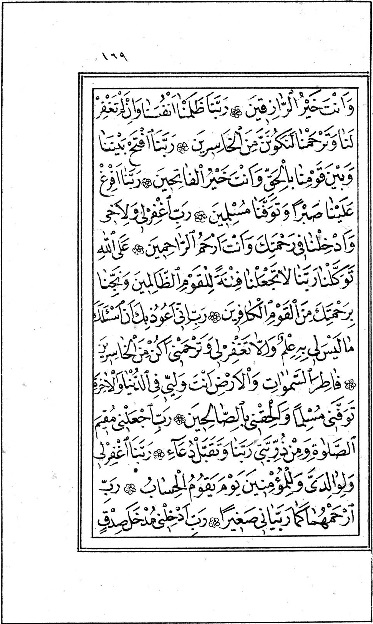 ١٦٩
وَاَنْتَ خَيْرُ الرَّازِقِينَ ۞ رَبَّنَا ظَلَمْنَا اَنْفُسَنَا وَاِنْ لَمْ تَغْفِرْ
لَنَا وَتَرْحَمْنَا لَنَكُونَنَّ مِنَ الْخَاسِرِينَ ۞ رَبَّنَا افْتَحْ بَيْنَنَا
وَبَيْنَ قَوْمِنَا بِالْحَقِّ وَاَنْتَ خَيْرُ الْفَاتِحِينَ ۞ رَبَّنَا اَفْرِغْ
عَلَيْنَا صَبْرًا وَتَوَفَّنَا مُسْلِمِينَ ۞ رَبِّ اغْفِرْلِى وَلِاَخِى
وَاَدْخِلْنَا فِى رَحْمَتِكَ وَاَنْتَ اَرْحَمُ الرَّاحِمِينَ ۞ عَلَى اللّٰهِ
تَوَكَّلْنَا رَبَّنَا لَا تَجْعَلْنَا فِتْنَةً لِلْقَوْمِ الظَّالِمِينَ وَنَجِّنَا
بِرَحْمَتِكَ مِنَ الْقَوْمِ الْكَافِرِينَ ۞ رَبِّ اِنِّى اَعُوذُ بِكَ اَنْ اَسْئَلَكَ
مَا لَيْسَ لِى بِهِ عِلْمٌ وَاِلَّا تَغْفِرْلِى وَتَرْحَمْنِى اَكُنْ مِنَ الْخَاسِرِينَ
۞ فَاطِرَ السَّمٰوَاتِ وَالْاَرْضِ اَنْتَ وَلِيِّى فِى الدُّنْيَا وَالْاٰخِرَةِ
تَوَفَّنِى مُسْلِمًا وَاَلْحِقْنِى بِالصَّالِحِينَ ۞ رَبِّ اجْعَلْنِى مُقِيمَ
الصَّلٰوةِ وَمِنْ ذُرِّيَّتِى رَبَّنَا وَتَقَبَّلْ دُعَاءِ ۞ رَبَّنَا اغْفِرْلِى
وَلِوَالِدَىَّ وَلِلْمُؤْمِنِينَ يَوْمَ يَقُومُ الْحِسَابُ ۞ رَبِّ
ارْحَمْهُمَا كَمَا رَبَّيَانِى صَغِيرًا ۞ رَبِّ اَدْخِلْنِى مُدْخَلَ صِدْقٍ